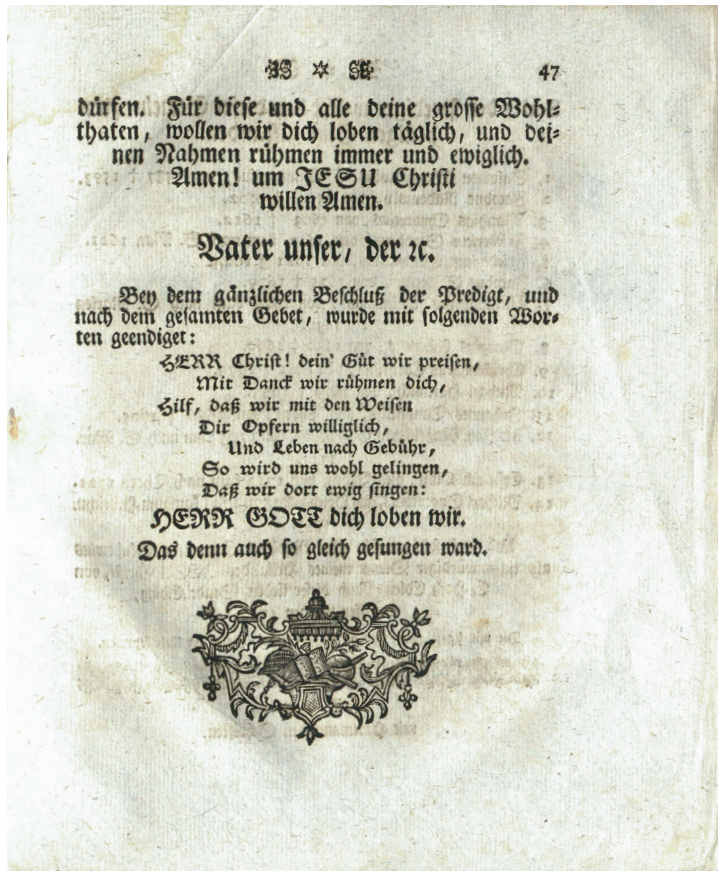 47
dürfen. Für diese und alle deine grosse Wohl-
thaten, wollen wir dich loben täglich, und dei-
nen Nahmen rühmen immer und ewiglich.
Amen! um JESU Christi
willen Amen.
Vater unser, der ꝛc.
Bey dem gänzlichen Beschluß der Predigt, und
nach dem gesamten Gebet, wurde mit folgenden Wor-
ten geendiget:
HERR Christ! dein' Güt wir preisen,
Mit Danck wir rühmen dich,
Hilf, daß wir mit den Weisen
Dir Opfern williglich,
Und Leben nach Gebühr,
So wird uns wohl gelingen,
Daß wir dort ewig singen:
HERR GOTT dich loben wir.
Das denn auch so gleich gesungen ward.